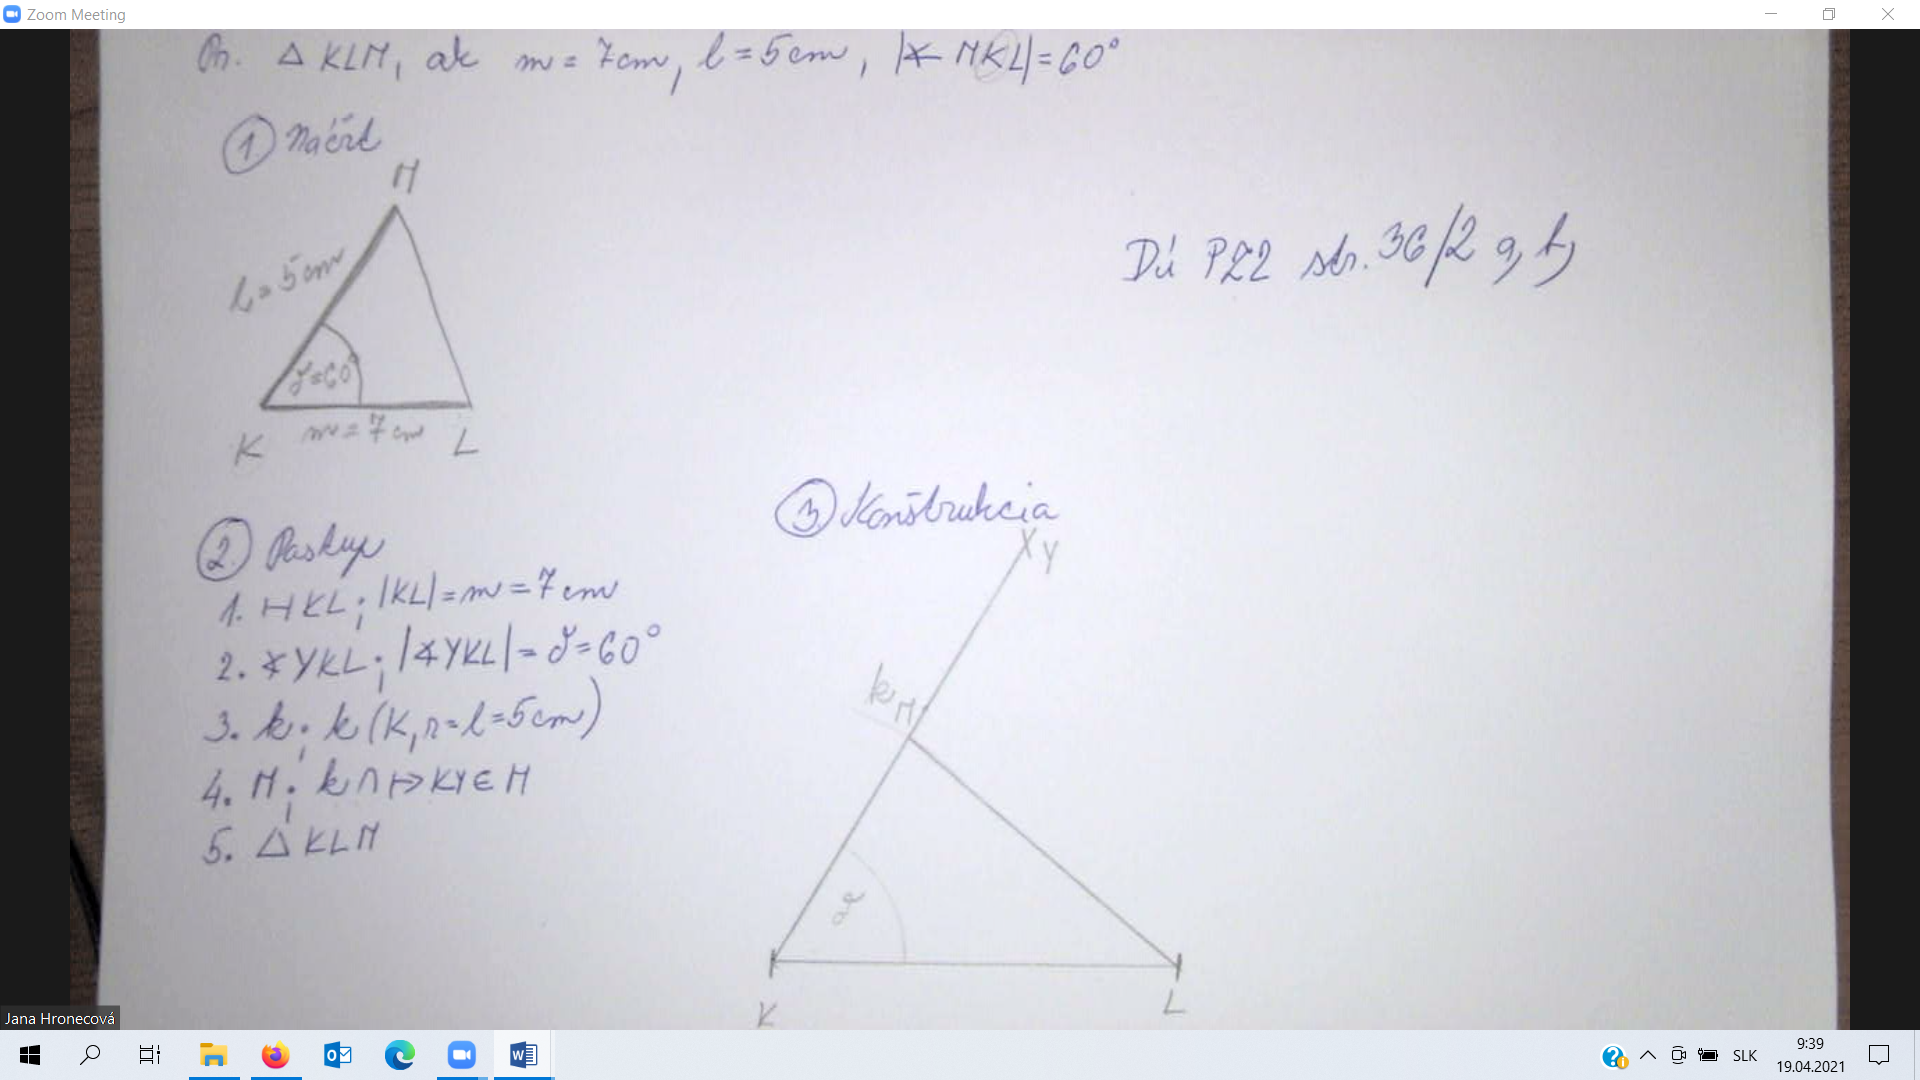 Zoom Meeting
Pr. △ KLM, ak m = 7cm, l = 5cm, |∢ MKL| = 60°
① Náčrt
M
l = 5cm
=60°
K m = 7cm L
Dú PZ2 str. 36/2 a, b,
② Postup
1. ⊢⊣ KL; |KL| = m = 7cm
2. ∢ YKL; |∢YKL| = = 60°
3. k; k (K, r = l = 5cm)
4. M; k ∩ ↦ KY ∈ M
5. △ KLM
③ Konštrukcia
Y
k M
K L
Jana Hronecová
SLK
9:39
19.04.2021